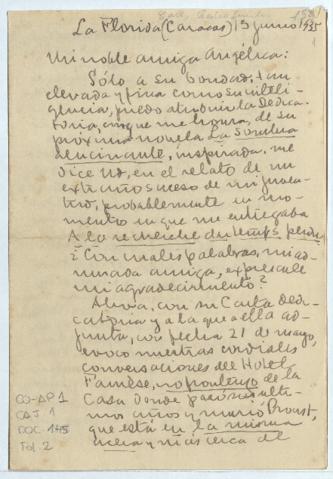 La Florida (Caracas) 13 junio 1935
Mi noble amiga Angélica:
Sólo a su bondad, tan
elevada y fina como su inteli-
gencia, puedo atribuir la dedica-
toria, con que me honra, de su
próxima novela La Sombra
alucinante, inspirada, me
dice Ud, en el relato de un
extraño suceso de mi juven-
tud, probablemente en mo-
mento en que me entregaba
A la recherche du temps perdu
¿Con cuales palabras, mi ad-
mirada amiga, expresarle
mi agradecimiento?
Ahora, con su Carta dedi-
catoria y a la que a ella ad-
junta, con fecha 21 de mayo,
evoco nuestras cordiales
conversaciones del Hotel
Farnèse, no lejos de la
Casa donde pasó sus últi-
mos años y murió Proust,
que está en la misma
acera y más cerca de
CO-AP1
CAJ 1
DOC. 145
Fol. 2